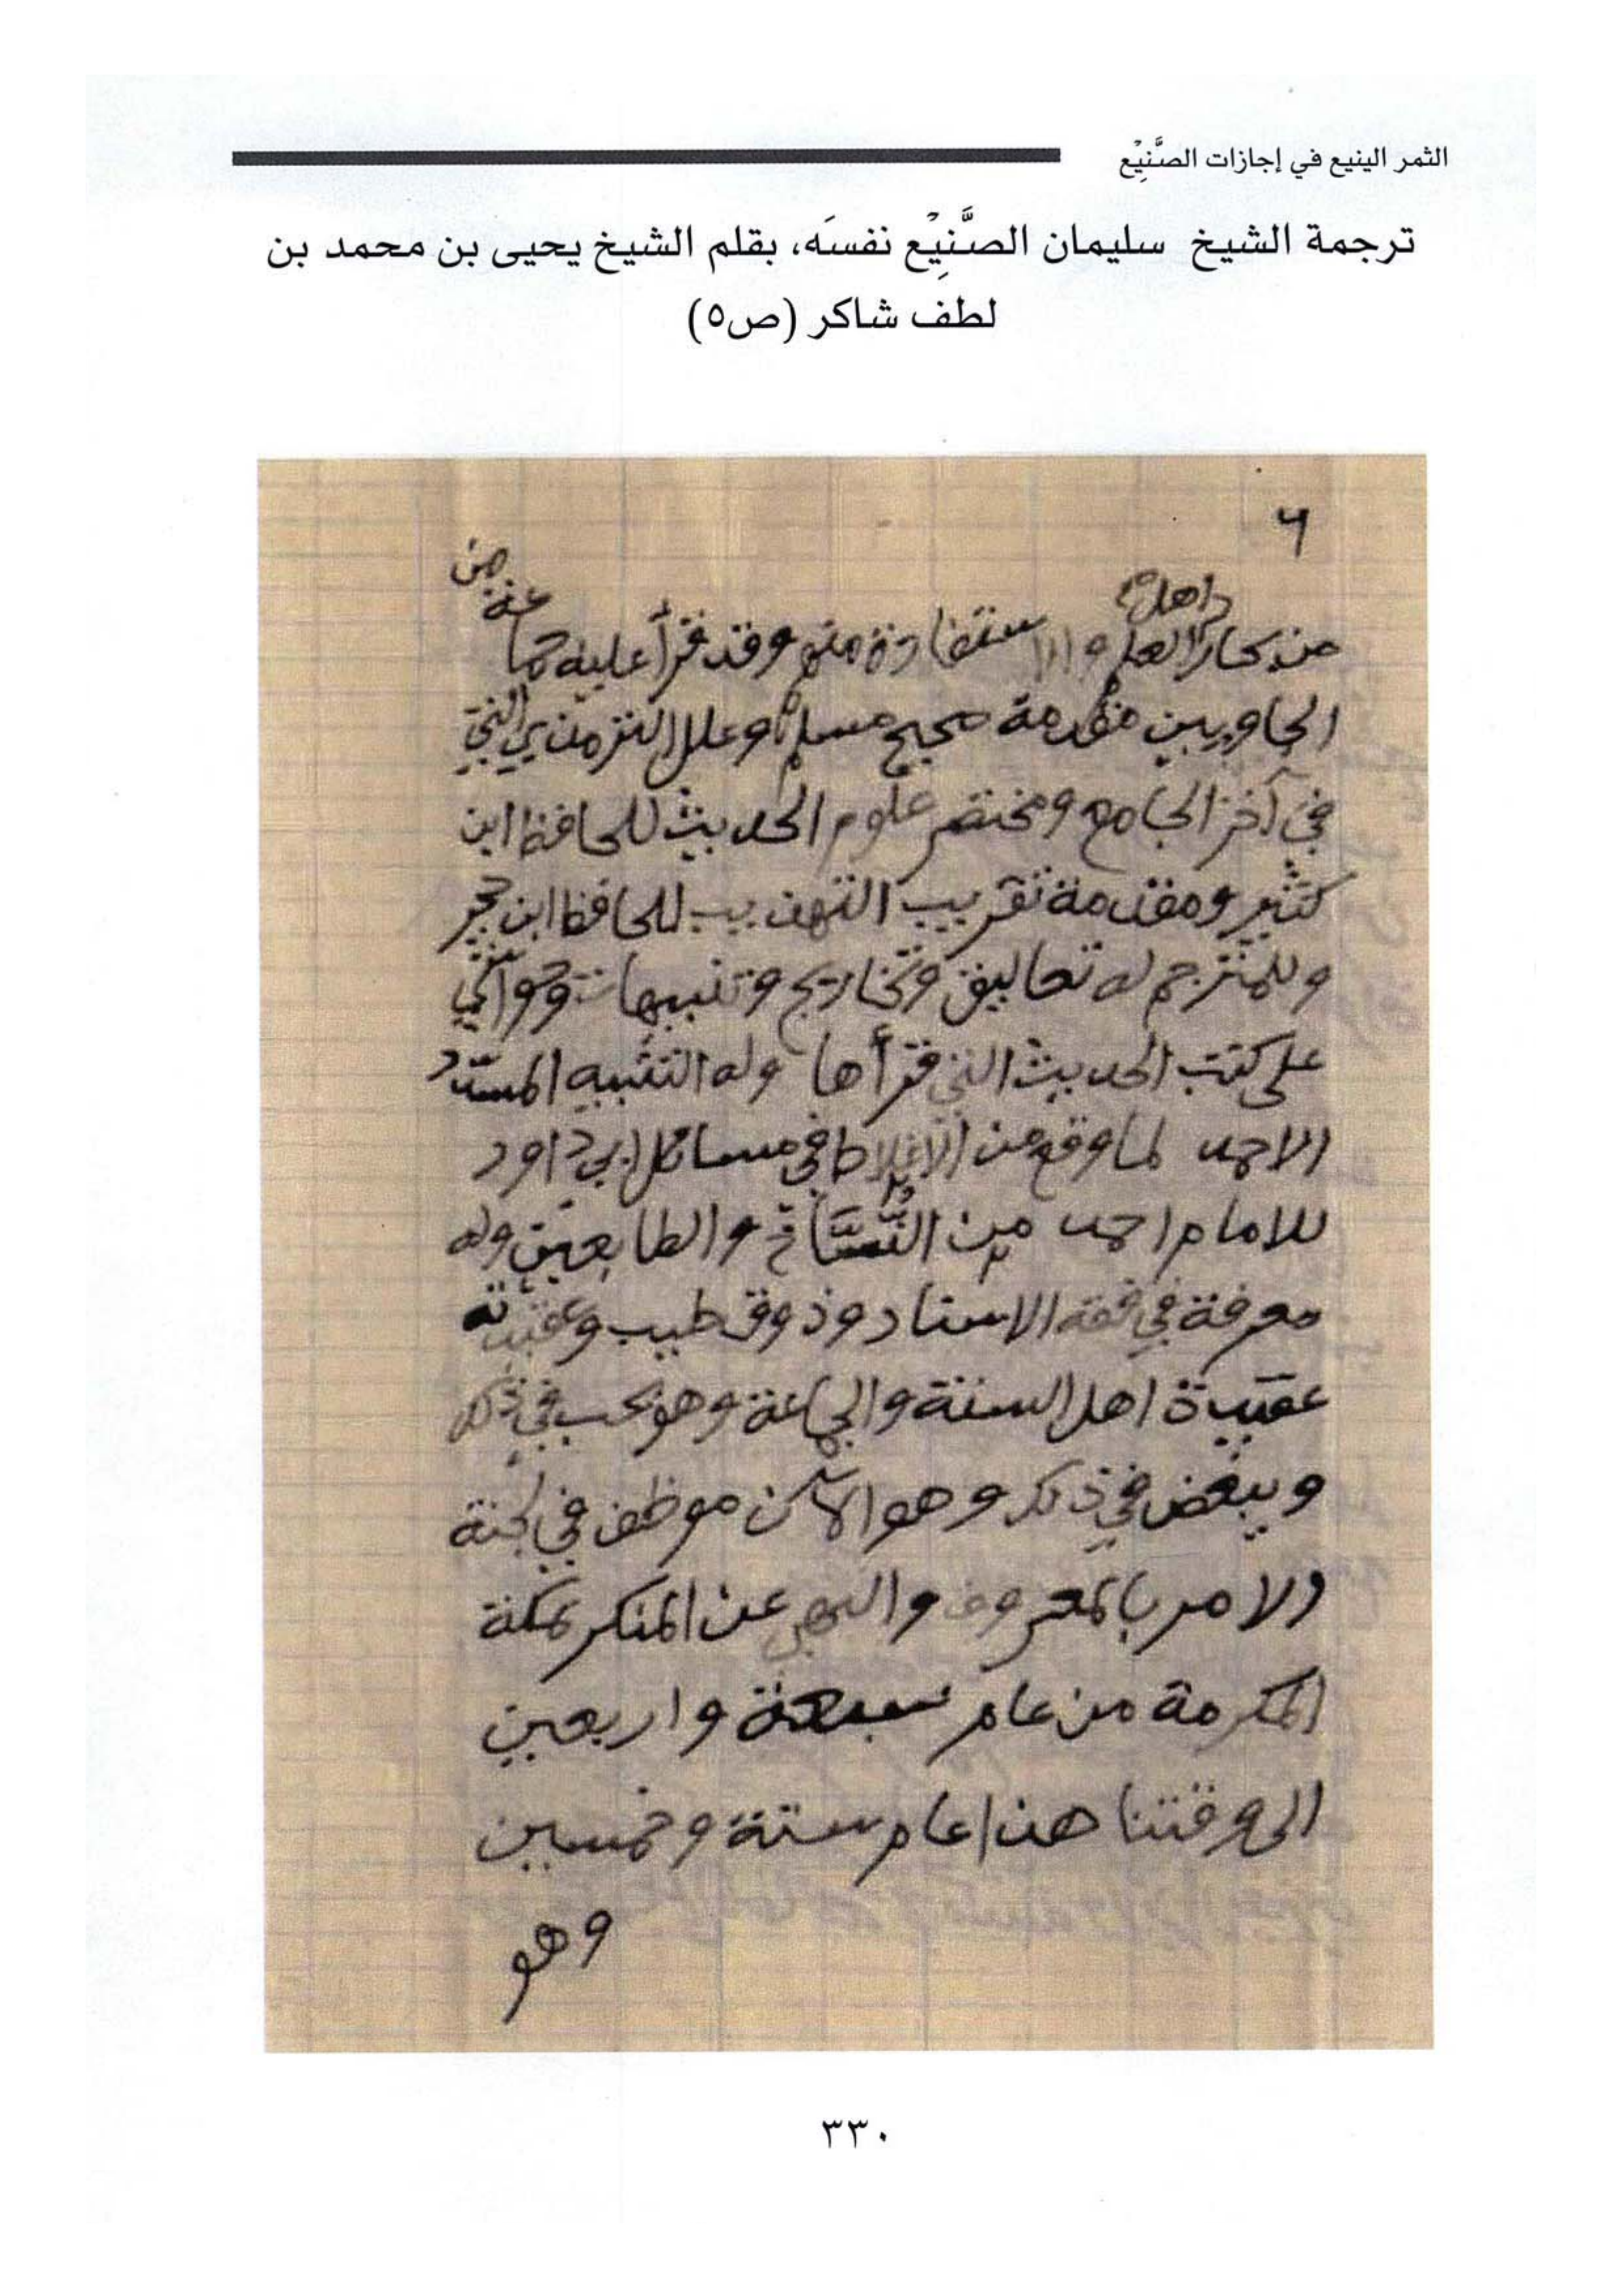 الثمر الينيع في إجازات الصَّنِيْع
ترجمة الشيخ سليمان الصَّنِيْع نفسَه، بقلم الشيخ يحيى بن محمد بن
لطف شاكر (ص٥)
٦
من
اهل
من كبار العلم والاستفادة منهم وقد قرأ عليه جماعة
الجاويين مقدمة صحيح مسلم وعلل الترمذي التي
في آخر الجامع ومختصر علوم الحديث للحافظ ابن
كثير ومقدمة تقريب التهذيب للحافظ ابن حجر
وللمترجم له تعاليق وتخاريج وتنبيهات وحواشي
على كتب الحديث التي قرأها وله التنبيه المسدد
الاحمد لما وقع من الاغلاط في مسائل ابي داود
للامام احمد من النُّسَّاخ والطابعين وله
معرفة في فقه الاسناد وذوق طيب وعقيدته
عقيدة اهل السنة والجماعة وهو يحب في ذلك
ويبغض في ذلك وهو الآن موظف في لجنة
الامر بالمعروف والنهي عن المنكر بمكة
المكرمة من عام سبعة واربعين
الى وقتنا هذا عام ستة وخمسين
وهو
٣٣٠